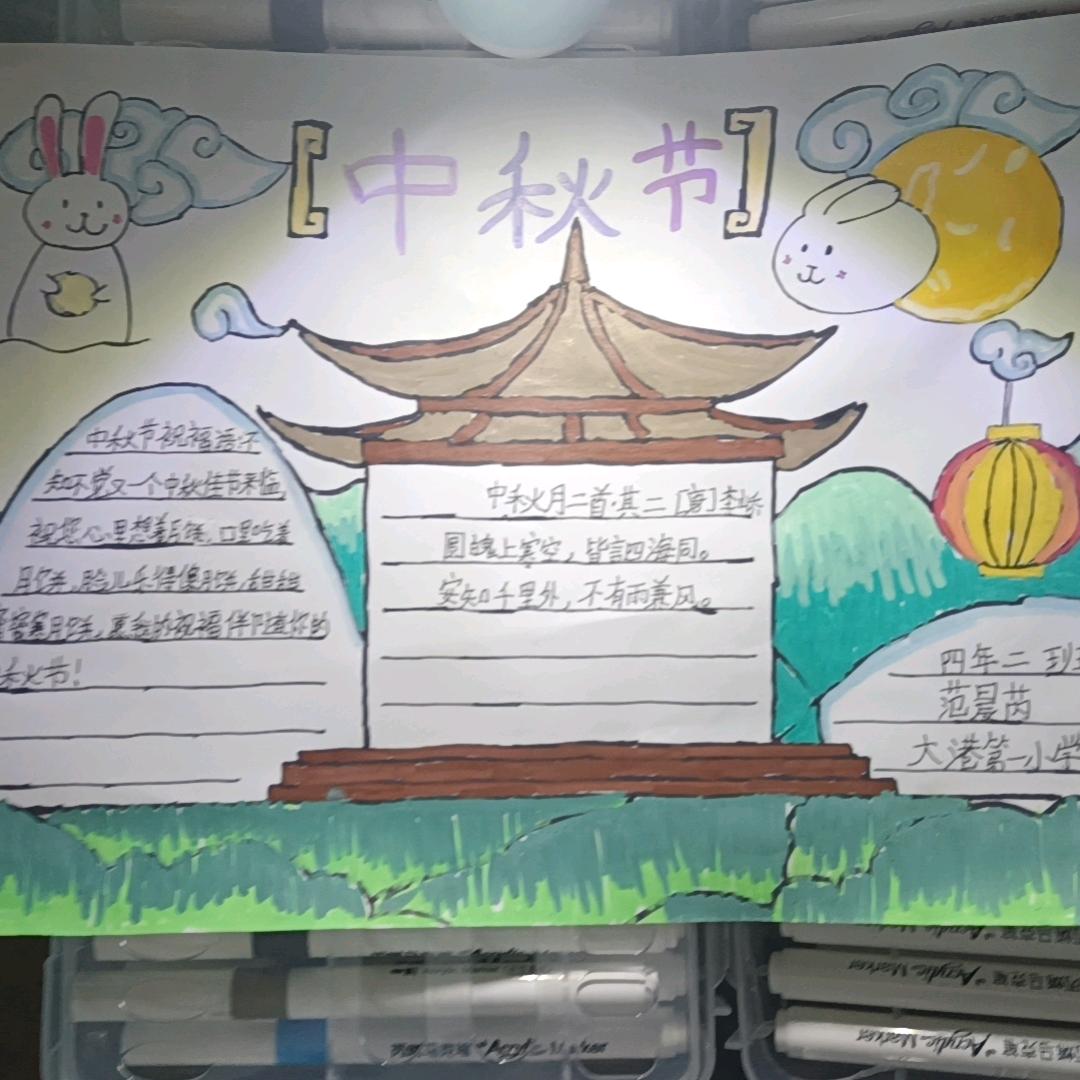 [中秋节]
中秋节祝福语:不
知不觉又一个中秋佳节来临,
祝您心里想着月饼,口里吃着
月饼,脸儿乐得像月饼,甜甜
蜜蜜赛月饼,愿我的祝福伴随着你的
秋节!
中秋月二首·其二 [唐]李峤
圆魄上寒空,皆言四海同。
安知千里外,不有雨兼风。
四年二班
范晨芮
大港第一小学
Acrylic Marker
Acrylic Marker
Acrylic Marker